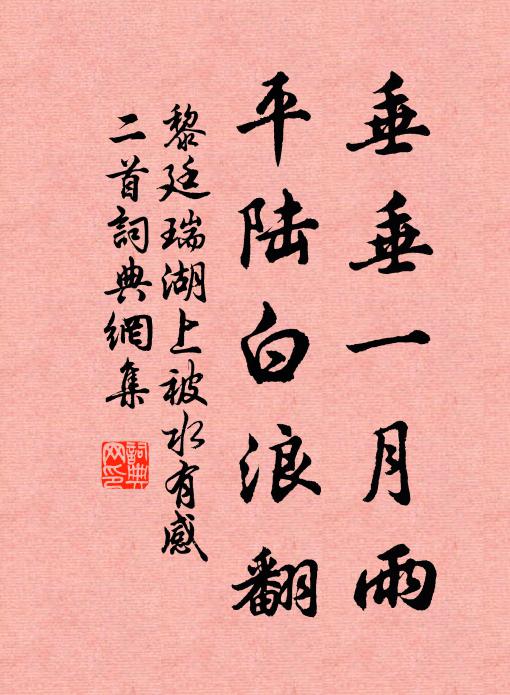 垂垂一月雨
平陆白浪翻
黎廷瑞湖上被水有感
二首詞典網集
詞典网印